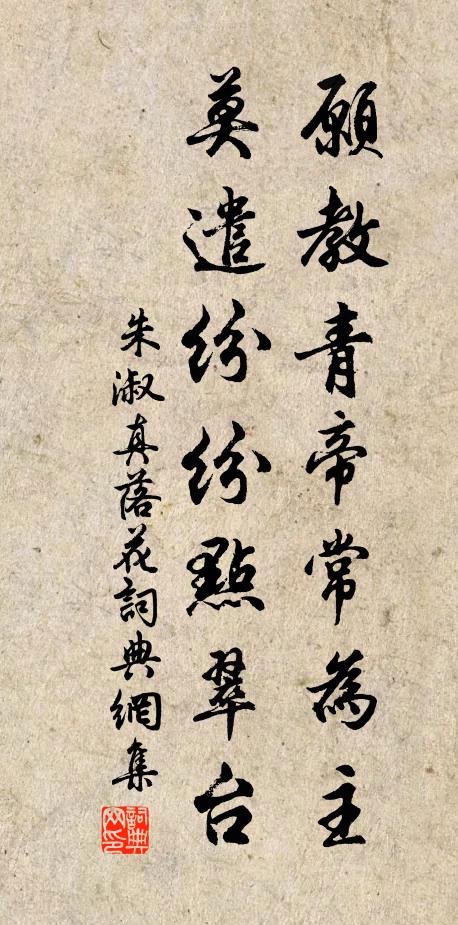 願教青帝常為主
莫遣紛紛點翠台
朱淑真落花詞典網集
詞典网印